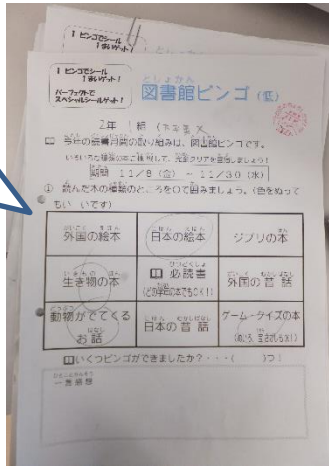 1 ビンゴでシール
1まいゲット!
1 ビンゴでシール
1まいゲット!
パーフェクトで
スペシャルシールゲット!
としょかん
図書館ビンゴ(低)
2年 1組
今年の読書月間の取り組みは、図書館ビンゴです。
いろいろな種類の本に挑戦して、完全クリアを目指しましょう!
期間 11/8(金)~11/30(水)
① 読んだ本の種類のところを○で囲みましょう。(色をぬって
もいいです)
外国の絵本
日本の絵本
ジブリの本
生き物の本
必読書
(どの学年の本でもOK!)
外国の昔話
動物がでてくる
お話
日本の昔話
ゲーム・クイズの本
いくつビンゴができましたか?・・・( )つ!
一言感想